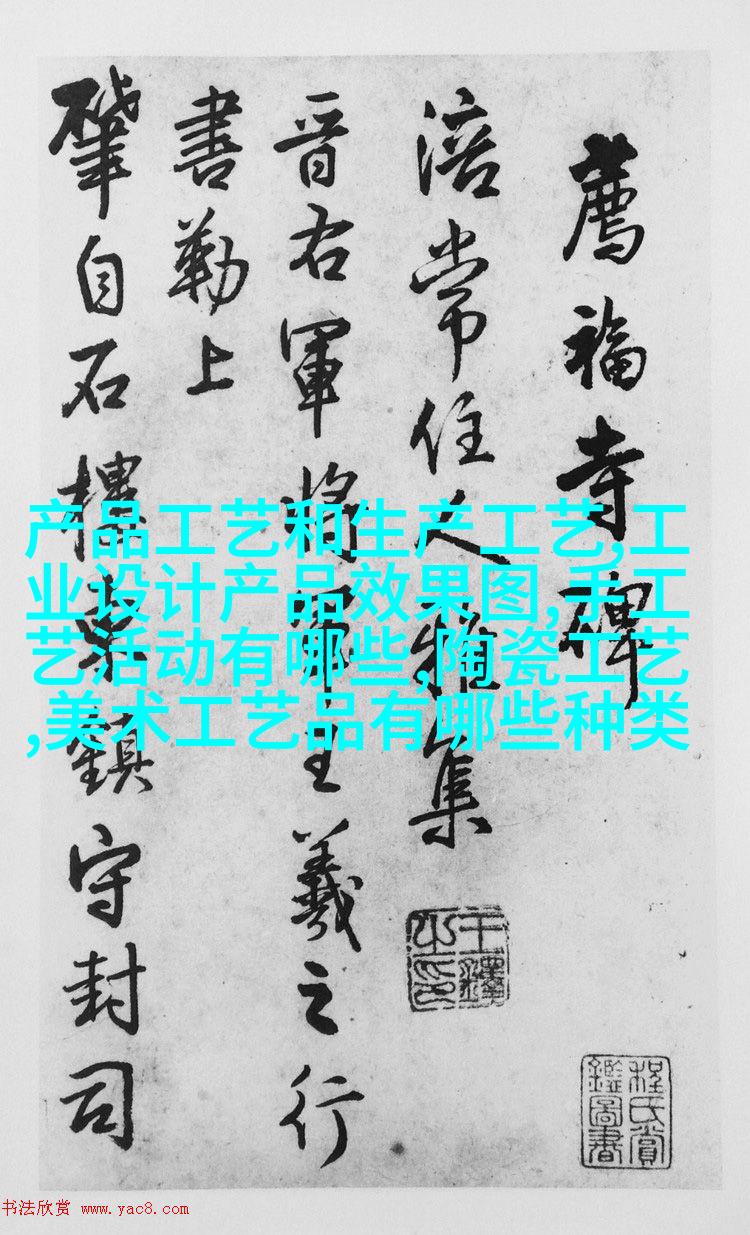 薦福寺碑
涪常住人雅集
晉右軍將軍王羲之行
書勒上
肇自石樓東鎮守封司
程氏賞鑑圖書
产品工艺和生产工艺,工
业设计产品效果图,手工
艺活动有哪些,陶瓷工艺
,美术工艺品有哪些种类
书法欣赏 www.yac8.com